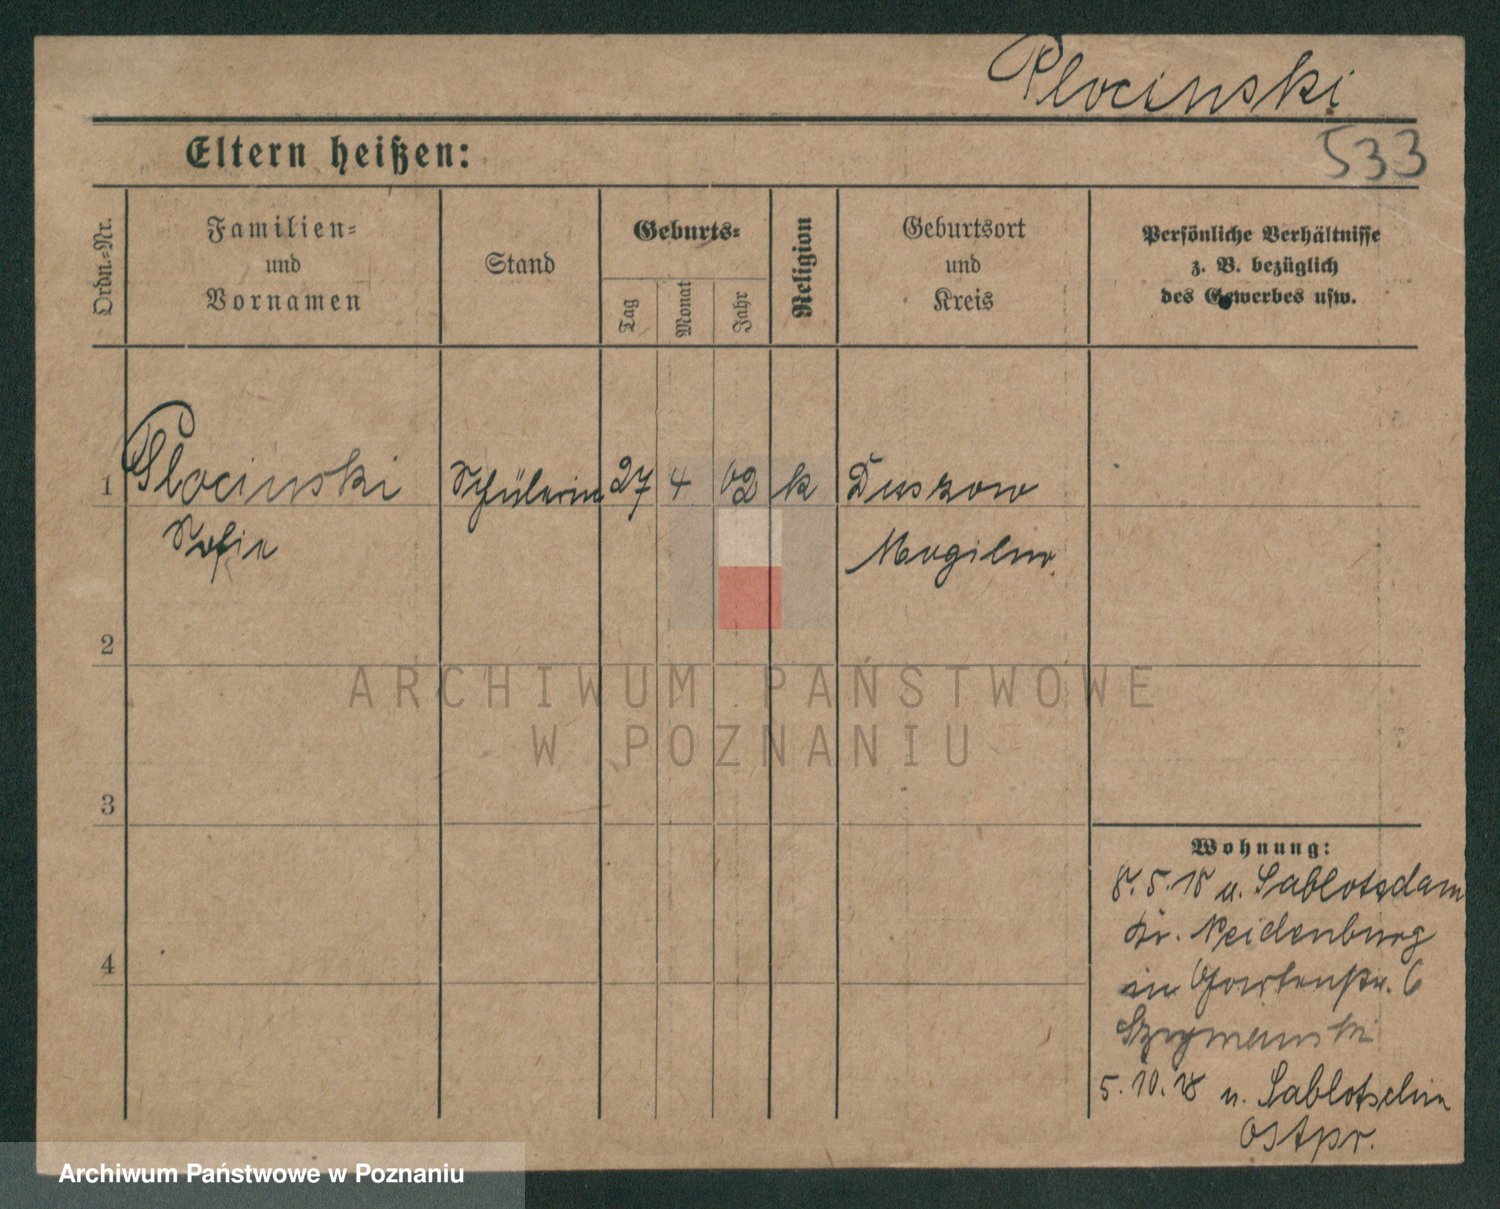 Plocinski
533
Eltern heißen:
Ordn.-Nr.
Familien-
und
Vornamen
Stand
Geburts-
Tag
Monat
Jahr
Religion
Geburtsort
und
Kreis
Persönliche Verhältnisse
z. B. bezüglich
des Gewerbes usw.
1 Plocinski Schülerin 27 4 02 k Duszow
Sofie Mogilno
2
3
4
Wohnung:
8.5.18 n. Sablotsdam
Kr. Neidenburg
in Gartenstr. 6
Szymanski
5.10.18 n.
Ostpr.
ARCHIWUM PAŃSTWOWE
W POZNANIU
Archiwum Państwowe w Poznaniu